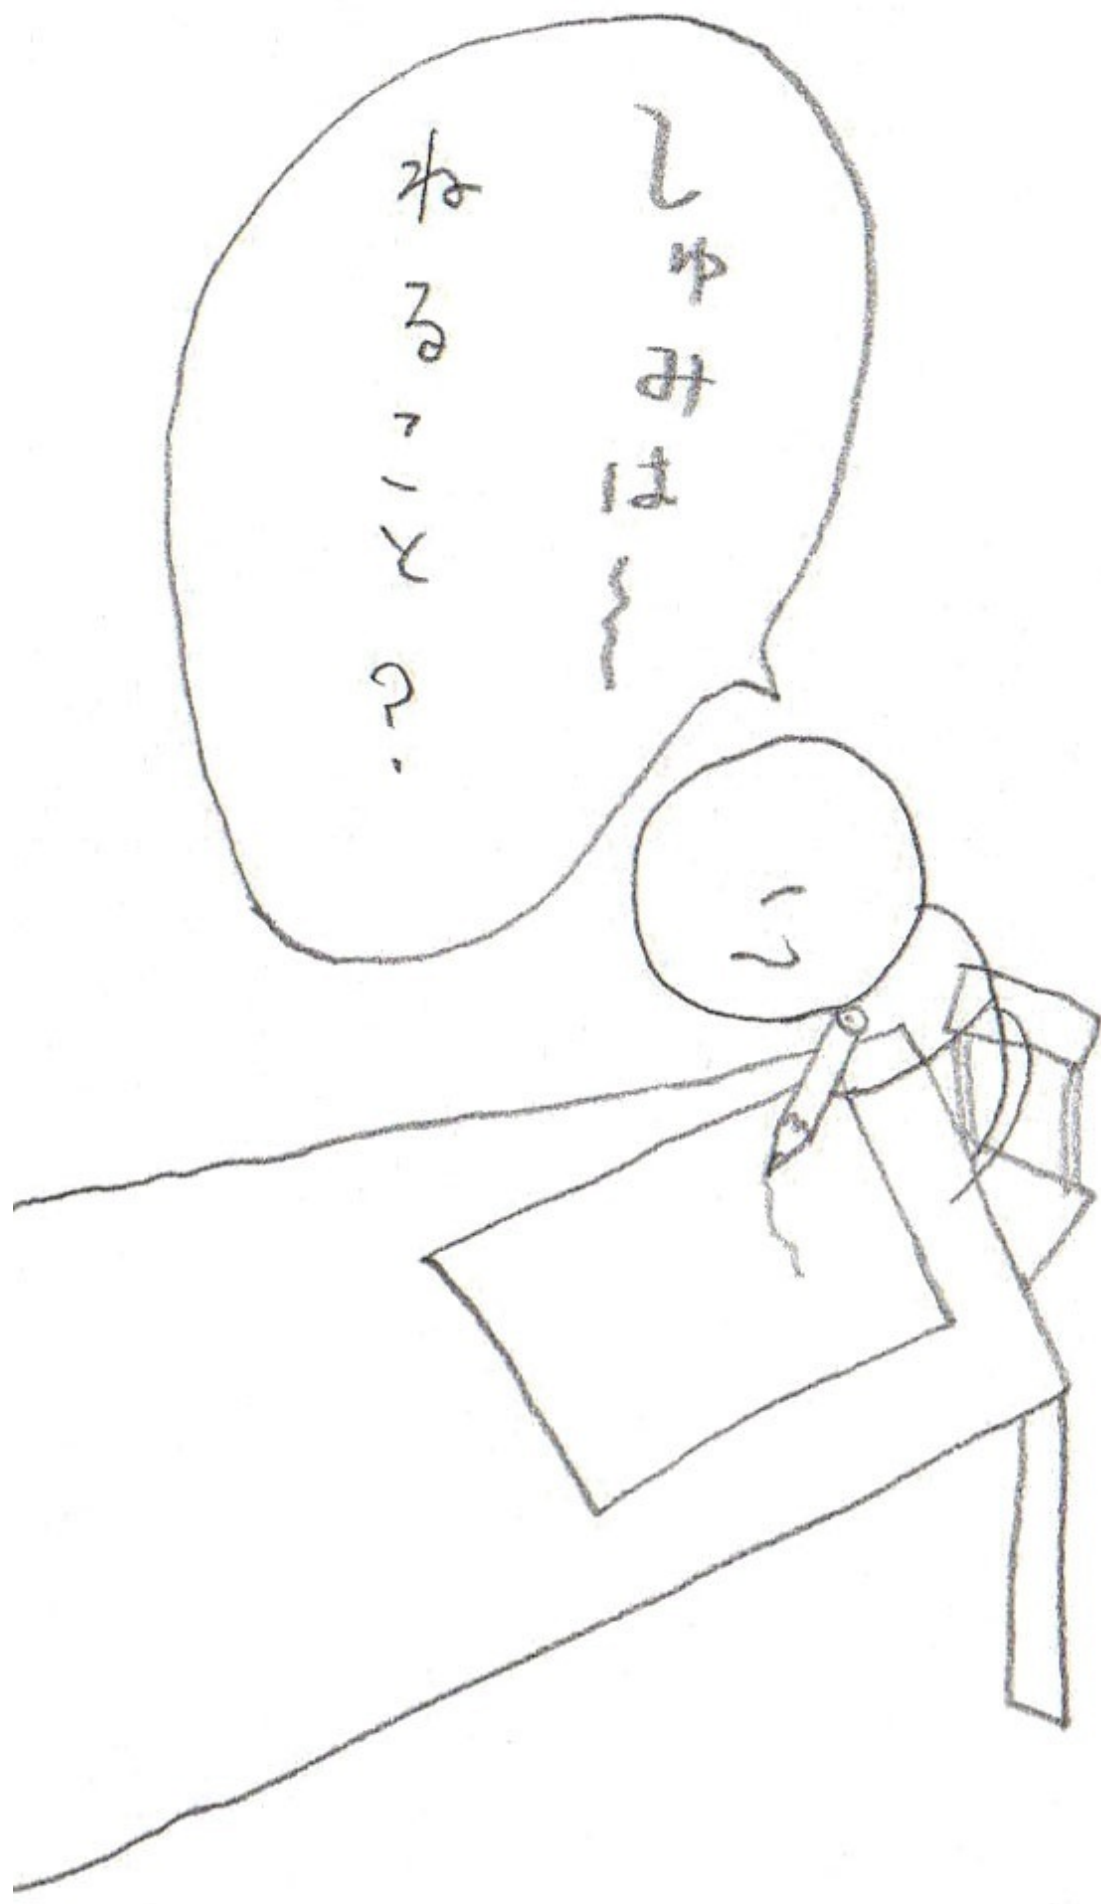 しゅみは〜
ねること?